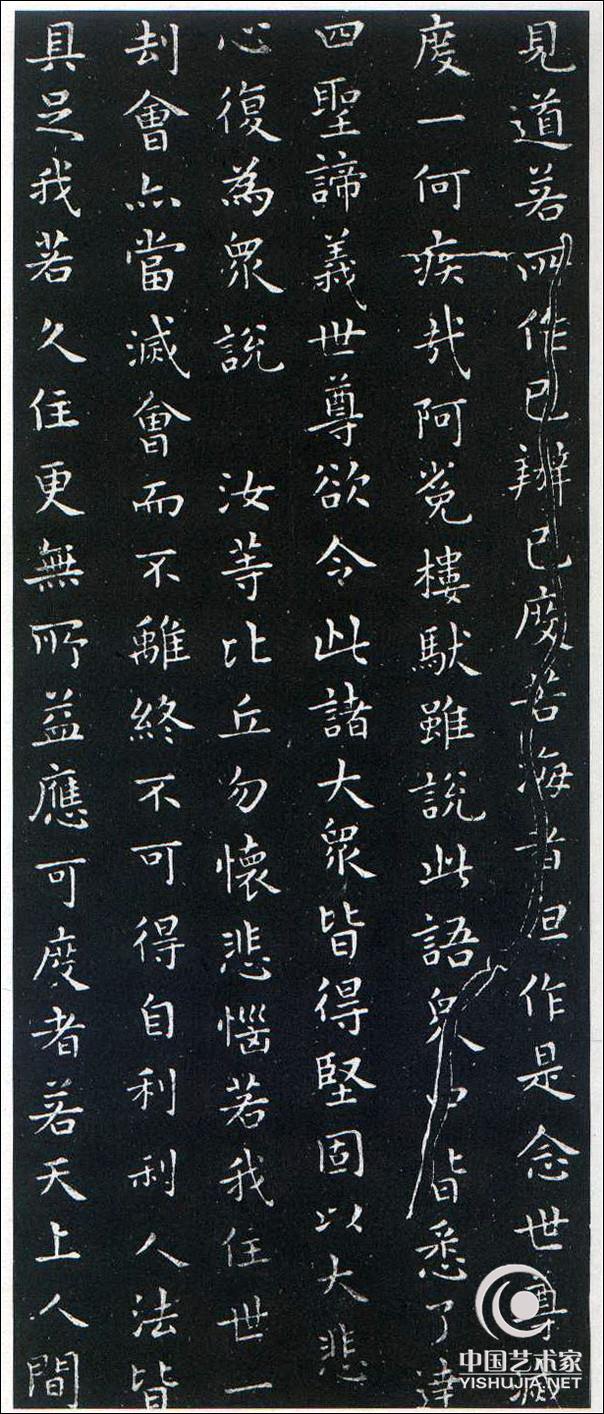 見道若所作已辦已度苦海者但作是念世尊滅
度一何疾哉阿㝹樓馱雖說此語衆中皆悉了達
四聖諦義世尊欲令此諸大衆皆得堅固以大悲
心復為衆說　汝等比丘勿懷悲惱若我住世一
刦會亦當滅會而不離終不可得自利利人法皆
具足我若久住更無所益應可度者若天上人間
中国艺术家
YISHUJIA.NET